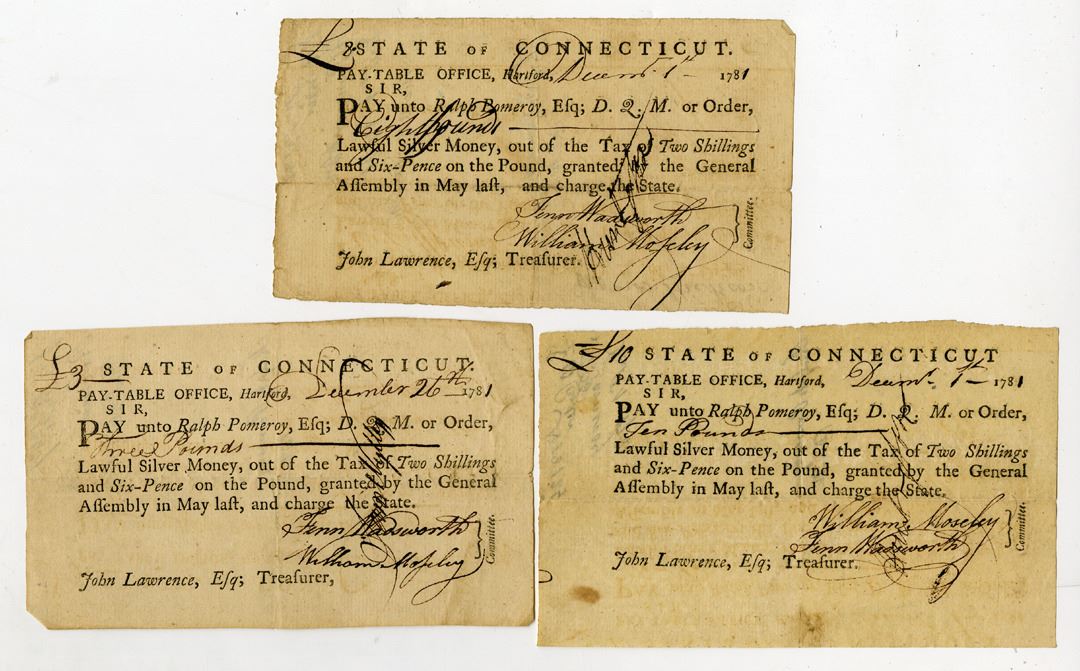 £ 8 STATE OF CONNECTICUT.
PAY-TABLE OFFICE, Hartford, Decemr. 1st 1781
SIR,
PAY unto Ralph Pomeroy, Esq; D. Q. M. or Order,
Eight pounds
Lawful Silver Money, out of the Tax of Two Shillings
and Six-Pence on the Pound, granted by the General
Aſſembly in May laſt, and charge the State.
Fenn Wadsworth
William Moseley
Committee.
John Lawrence, Eſq; Treaſurer.
£3 STATE OF CONNECTICUT.
PAY-TABLE OFFICE, Hartford, December 26th 1781
SIR,
PAY unto Ralph Pomeroy, Eſq; D. Q. M. or Order,
Three Pounds
Lawful Silver Money, out of the Tax of Two Shillings
and Six-Pence on the Pound, granted by the General
Aſſembly in May laſt, and charge the State.
Fenn Wadsworth
William Moseley
Committee.
John Lawrence, Eſq; Treaſurer,
£10 STATE OF CONNECTICUT
PAY-TABLE OFFICE, Hartford, Decemr. 1st 1781
SIR,
PAY unto Ralph Pomeroy, Eſq; D. Q. M. or Order,
Ten Pounds
Lawful Silver Money, out of the Tax of Two Shillings
and Six-Pence on the Pound, granted by the General
Aſſembly in May laſt, and charge the State.
William Moseley
Fenn Wadsworth
Committee.
John Lawrence, Eſq; Treaſurer.